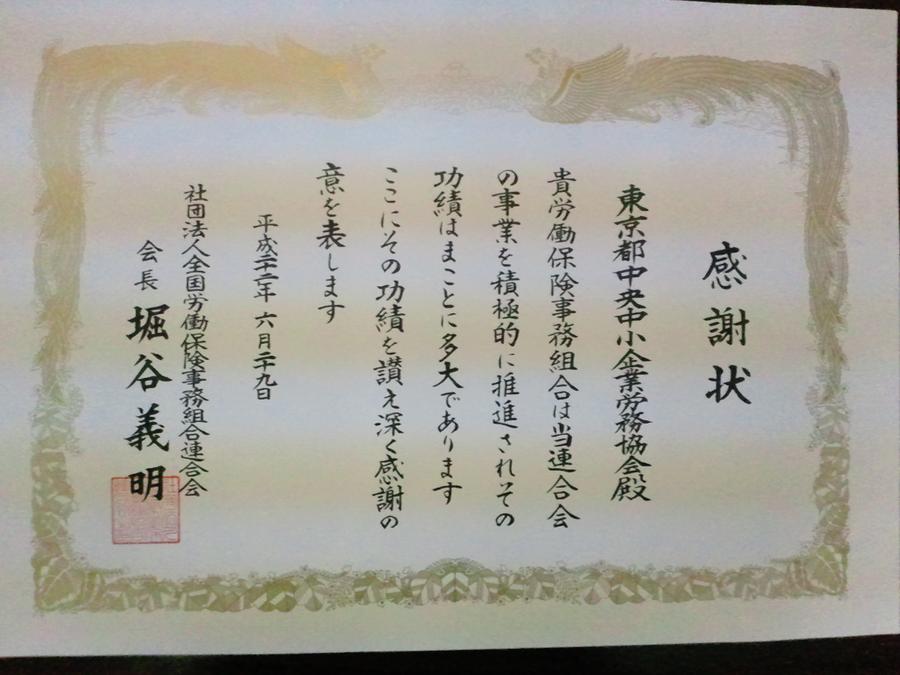 感謝状
東京都中央中小企業労務協会殿
貴労働保険事務組合は当連合会
の事業を積極的に推進されその
功績はまことに多大であります
ここにその功績を讃え深く感謝の
意を表します
平成二十二年 六月二十九日
社団法人全国労働保険事務組合連合会
会長 堀谷義明